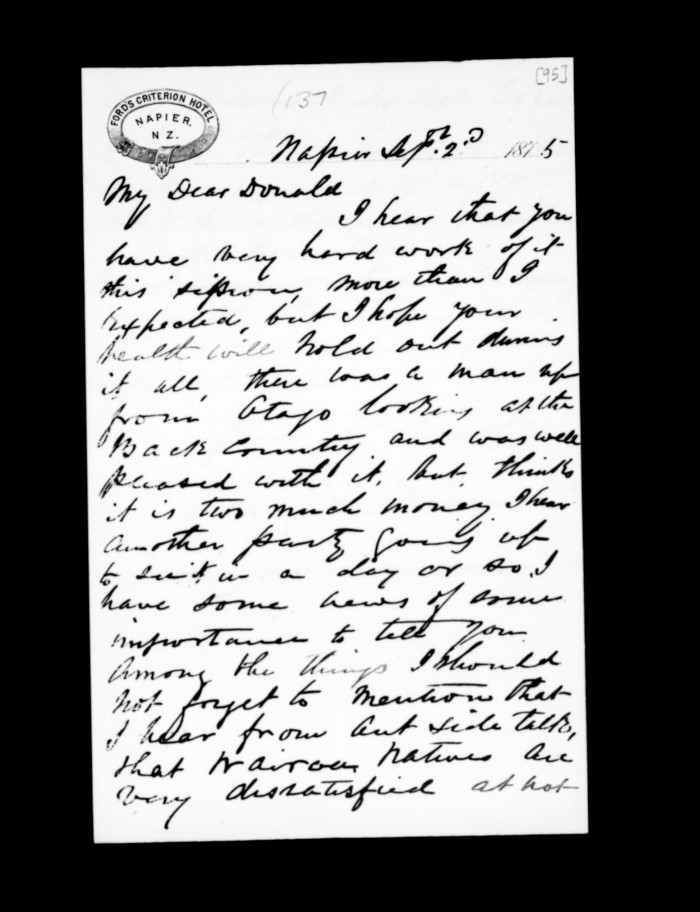 [95]
(137
FORD'S CRITERION HOTEL
NAPIER.
N Z.
Napier Sept. 2.D 1875
My Dear Donald
I hear that you
have very hard work of it
this more than I
Expected, but I hope your
health will hold out during
it all, there was a man up
from Otago looking at the
Back Country and was well
pleased with it, but thinks
it is two much money I hear
another party going up
to see it in a day or so. I
have some news of some
importance to tell you
Among the things I should
not forget to mention that
I hear from out side talk,
that Wairoa Natives are
very dissatisfied at not